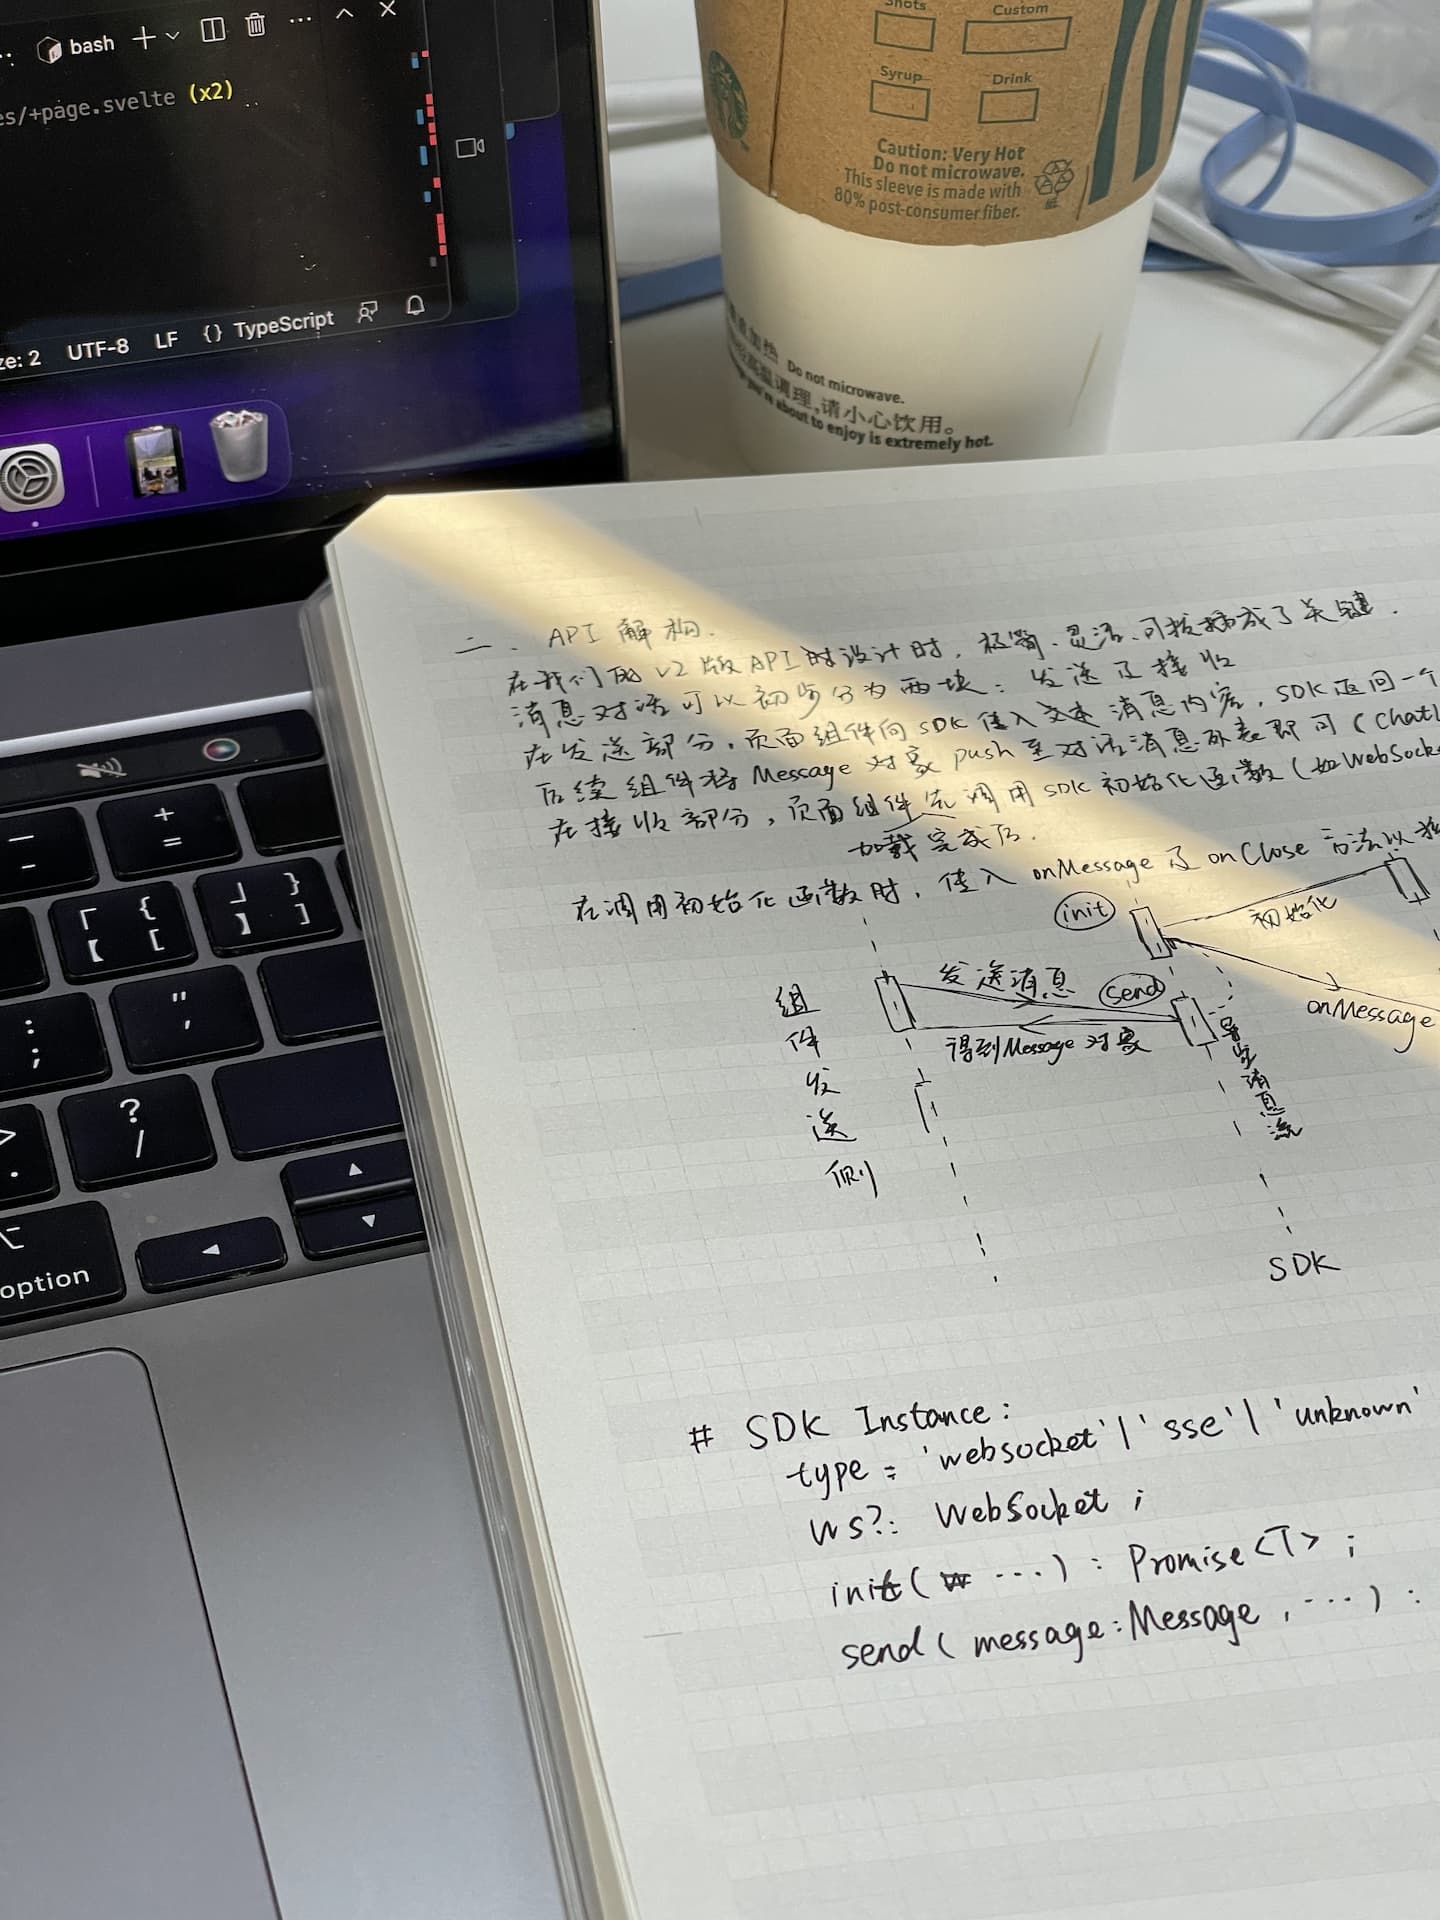 bash
es/+page.svelte (x2)
ze: 2 UTF-8 LF {} TypeScript
Shots Custom
Syrup Drink
Caution: Very Hot
Do not microwave.
This sleeve is made with
80% post-consumer fiber.
加热 Do not microwave.
高温调理,请小心饮用。
you're about to enjoy is extremely hot.
+
=
{
[
}
]
:
;
"
'
?
/
option
二、API 解构.
在我们的 V2 版 API 时设计时,极简、灵活、可扩展成了关键.
消息对话可以初步分为两块:发送及接收
在发送部分,页面组件向 SDK 传入文本消息内容,SDK 返回一个
后续组件将 Message 对象 push 至对话消息列表即可(Chat
在接收部分,页面组件先调用 SDK 初始化函数(如 WebSocke
加载完成后.
在调用初始化函数时,传入 onMessage 及 onClose 方法以
init 初始化
发送消息 send
onMessage
得到 Message 对象
组件发送侧
导出消息流
SDK
# SDK Instance:
type = 'websocket' | 'sse' | 'unknown'
ws?: WebSocket ;
init( ... ) : Promise<T> ;
send( message:Message , ... ) :